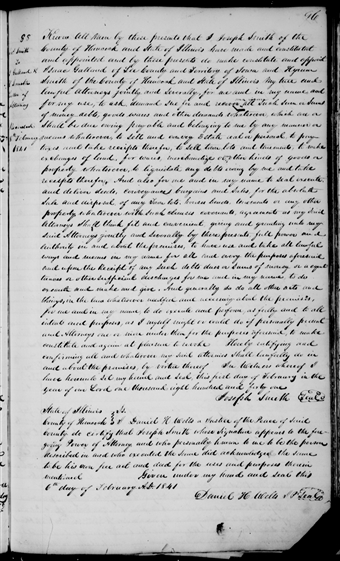 96
Know all Men by these presents that I Joseph Smith of the
County of Hancock and State of Illinois have made and constituted
and appointed and by these presents do make constitute and appoint
Isaac Galland of Lee County and Territory of Iowa and Hyrum
Smith of the County of Hancock and State of Illinois My true and
lawful Attorneys jointly and severally for me and in my name and
for my use, to ask demand Sue for and recover all Such Sum or Sums
of money, debts, goods wares and other demands whatsoever which are or
Shall be due owing payable and belonging to me by any manner or
means whatsoever to Sell and convey Estate
take receipts therefor, to sell town lots and tenements, to make
exchanges of land, for wares, merchandise or other kinds of goods or
property whatsoever, to liquidate any debts owing by me and take
receipts therefor, And also for me and in my name to Seal execute
and deliver Deeds, conveyances bargains and Sales, for the absolute
Sale and disposal of any town lots, houses lands tenements or any other
property whatsoever with such clauses covenants, agreements as my said
Attorneys Shall think fit and convenient giving and granting unto my
said Attorneys jointly and severally by these presents full power and
authority in and about the premises, to have use and take all lawful
ways and means in my name for all and every the purposes aforesaid
and upon the receipt of any Such debts dues or Sums of money or
other sufficient discharges for me and in my name to do
execute and make and give. And generally to do all other acts and
things in the law whatsoever needful and necessary about the premises,
for me and in my name to do execute and perform as fully and to all
intents and purposes, as I myself might or could do if personally present
and Attorneys one or more under them for the purposes aforesaid to make
constitute and again at pleasure to revoke Hereby ratifying and
confirming all and whatsoever my said attornies Shall lawfully do in
and about the premises, by virtue hereof In testimony whereof I
have hereunto set my hand and Seal, this day of February in the
year of our Lord one thousand eight hundred and forty one
Joseph Smith Seal
State of Illinois
County of Hancock I Daniel H Wells a Justice of the Peace of Said
County do certify that Joseph Smith whose Signature appears to the fore
going Power of Attorney and who personally known to me to be the person
described in and who executed the Same did acknowledge the same
to be his own free act and deed for the uses and purposes therein
mentioned Given under my hand and Seal this
6th day of February AD. 1841.
Daniel H Wells J P Seal